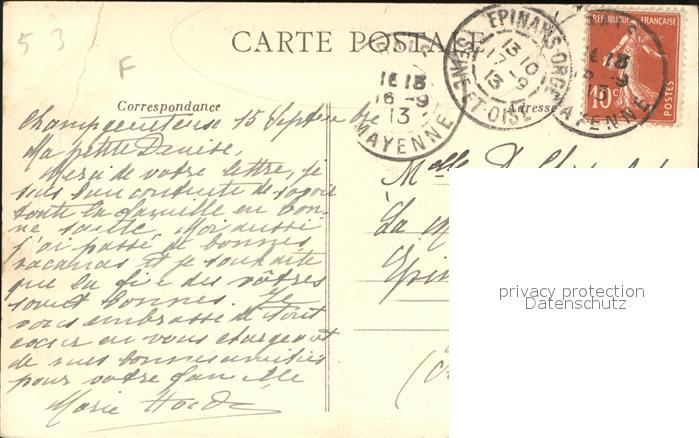 53
F
CARTE POSTALE
Correspondance
Adresse
RÉPUBLIQUE FRANÇAISE
10c
POSTES
MAYENNE
16-9
13
EPINAY-S-ORGE
SEINE-ET-OISE
13 10
17-9
13
MAYENNE
15 Septembre
Ma petite Denise,
Merci de votre lettre, je
suis bien contente de savoir
toute la famille en bon-
ne santé. Moi aussi
j'ai passé de bonnes
vacances et je souhaite
que la fin des vôtres
soient bonnes. Je
vous embrasse de tout
cœur en vous chargeant
de mes bonnes amitiés
pour votre famille
Marie
Melle D.
La
Epin
privacy protection
Datenschutz